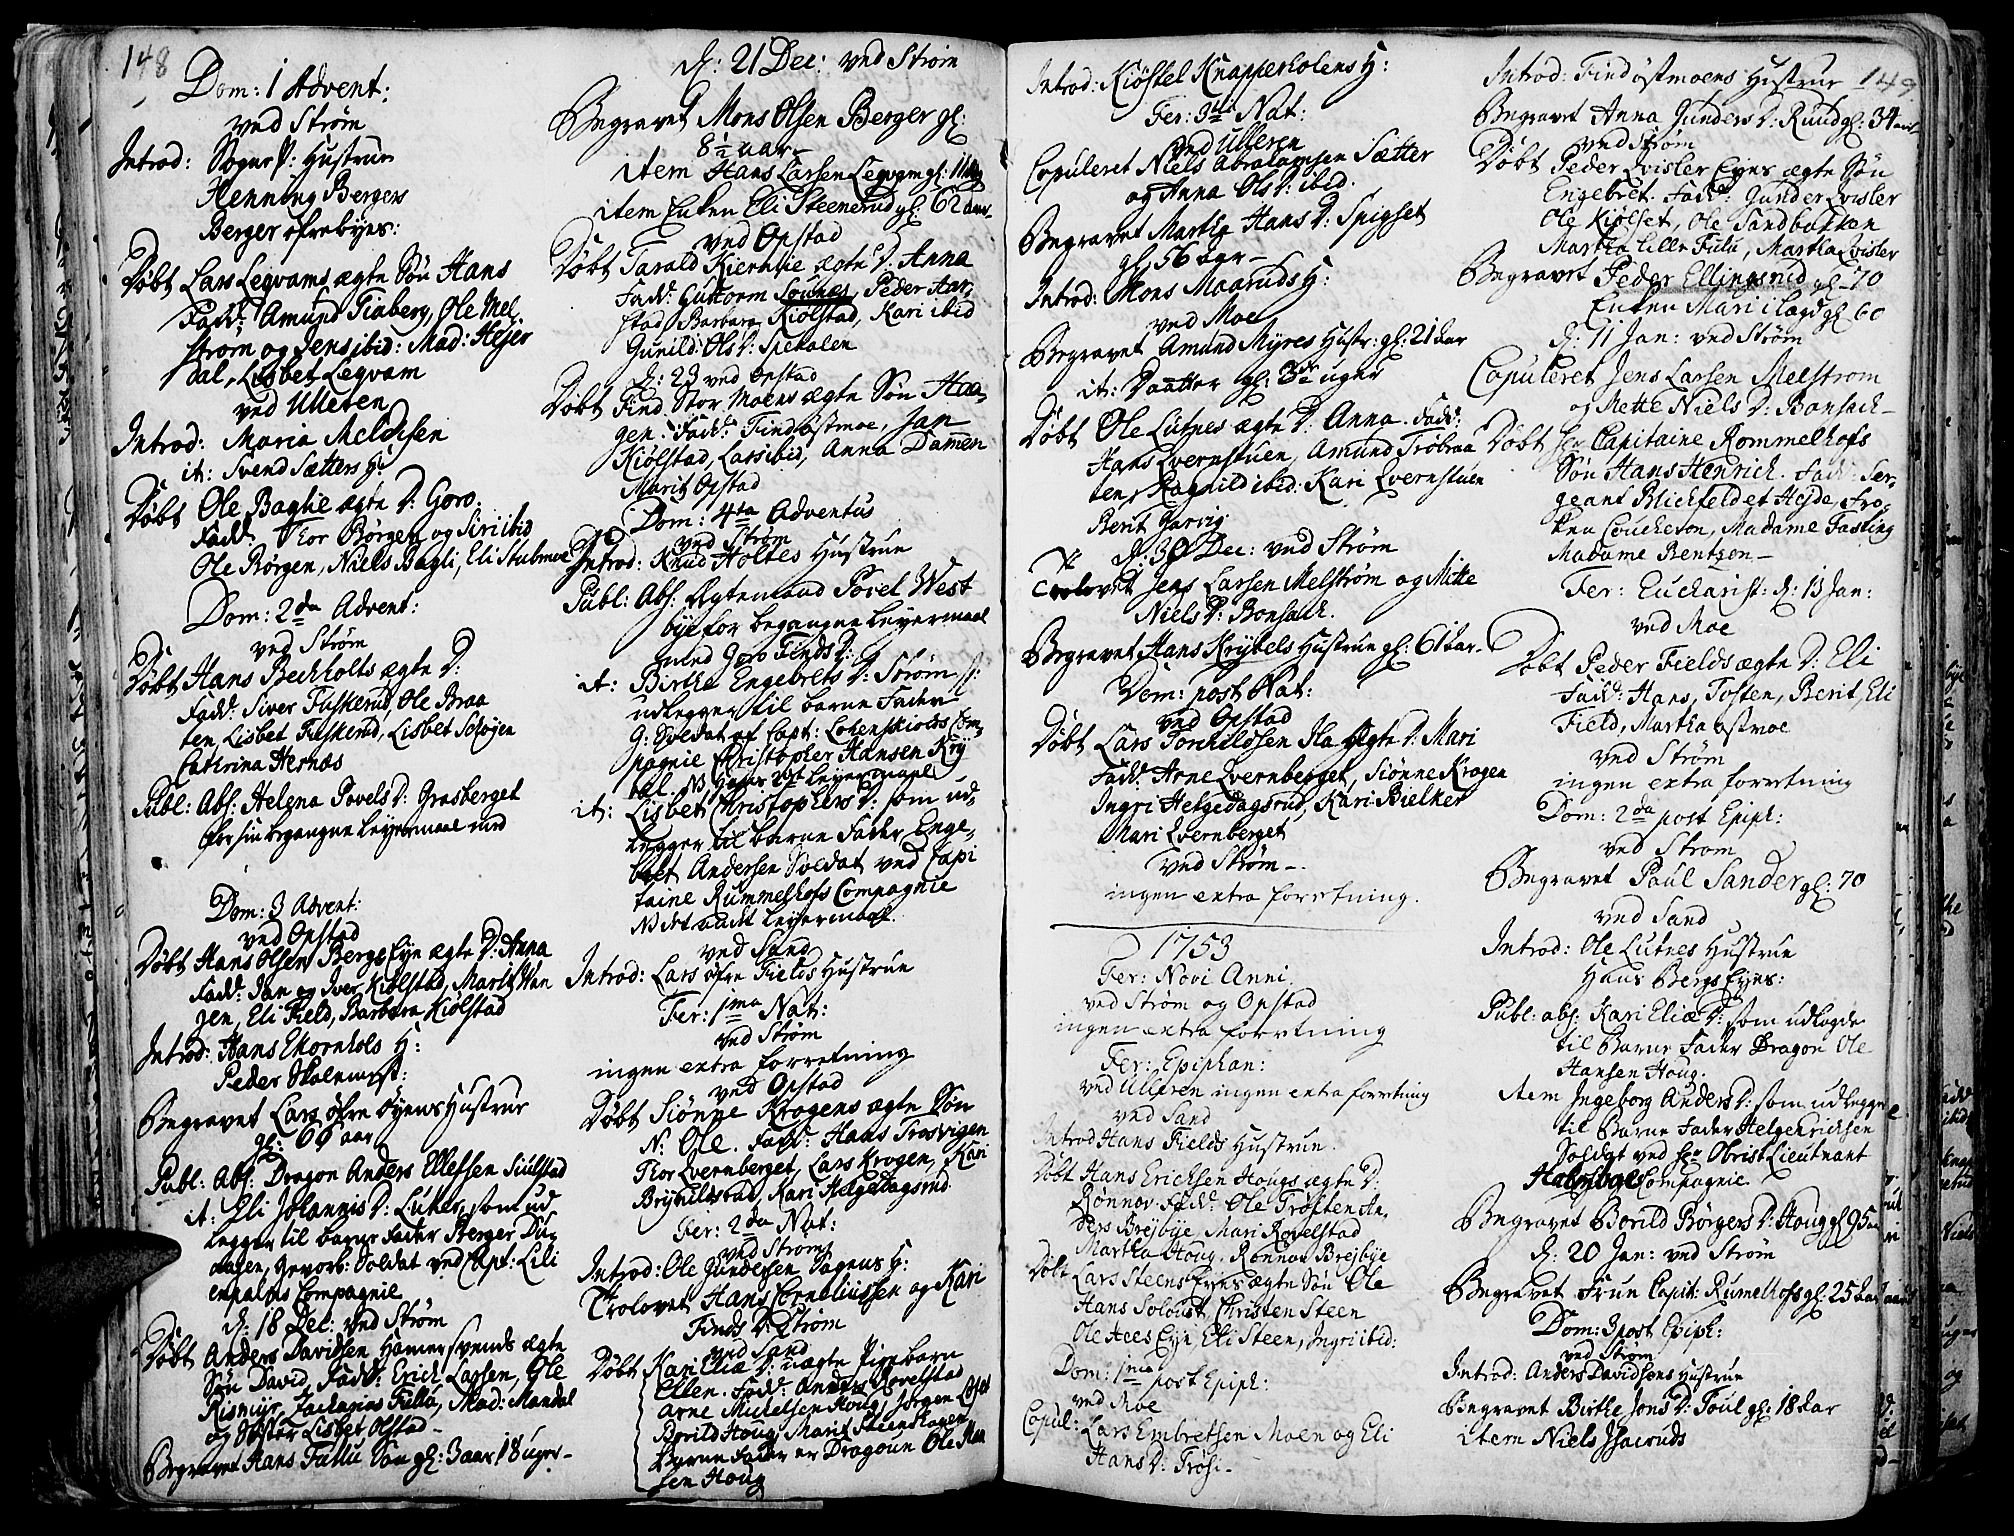 148
Dom: 1 Advent:
ved Strøm
Introd: Sogne P: Hustrue
Henning Bergers
Berger øfrebyes:
Døbt Lars Legvams ægte Søn Hans
Fadd: Amund Fiaberg, Ole Mel,
strøm og Jens ibid: Mad: Hejer
dal, Lisbet Legvam
ved Ulleren
Introd: Maria Melchesen
it: Svend Sætters H:
Døbt Ole Baglie ægte D: Goro.
Fadd: Thor Børgen og Siri ibid
Ole Børgen, Niels Bagli, Eli Stubmoe
Dom: 2da Advent:
ved Strøm
Døbt Hans Bechholts ægte D:
Fadd: Siver Fuskerud, Ole Braa
ten, Lisbet Fuskerud, Lisbet Soløyen
Catrina Hernæs
Publ: Abs: Helena Povels D: Grasberget
for sin begangne Leyermaal med
Dom: 3 Advent:
ved Opstad
Døbt Hans Olsen Bergs Eye ægte D: Anna
Fadd: Jan og Iver Kiølstad, Marit Wan
gen, Eli Field, Barbara Kiølstad
Introd: Hans Ekornhols H:
Peder Skolemest:
Begravet Lars øfre Byens Hustrue
gl: 66 aar
Publ: Abs: Dragon Anders Ellefsen Siulstad
it: Eli Johannis D: Lutnes, som ud
legger til barne Fader Berger Du,
aasen, gevorb: Soldat ved Capt: Lili
enpalms Compagnie
d: 18 Dec: ved Strøm
Døbt Anders Davidsen Hamersmeds ægte
Søn David, Fadd: Erich Larsen, Ole
Rismyr, Zacharias Fullu, Mad: Mandal
og Søster Lisbet Olstad
Begravet Hans Fullu Søn gl: 3 aar 18 uger
d: 21 Dec: ved Strøm
Begravet Mons Olsen Berger gl:
8½ aar
item Hans Larsen Legvam gl: 11 dag
item Enken Eli Steenerud gl: 62 aar
ved Opstad
Døbt Tarald Kiernmie ægte D: Anna
Fadd: Guttorm Sounæs, Peder Aar,
stad, Barbara Kiølstad, Kari ibid
Gunild Ols D: Spekalen
d: 23 ved Opstad
Døbt Find Stor Moens ægte Søn Haa,
gen. Fadd: Find østmoe, Jan
Kiølstad, Lars ibid, Anna Damen
Marit Opstad
Dom: 4ta Adventus
ved Strøm
Introd: Knud Holtes Hustrue
Publ: Abs: Ægtemand Povel West
bye for begangne Leyermaal
med Goro Finds D:
it: Birthe Engebrets D: Strøm
udlegger til barne Fader
G: Soldat af Capt: Cohenskiolds Com,
pagnie Christopher Hansen Kry
bel. NB hans 2det Leyermaal
it: Lisbet Christophers D: som ud,
legger til barne Fader Enge,
bret Andersen Soldat ved Capi
taine Rummelhofs Compagnie
NB det andet Leyermaal.
ved Sand
Introd: Lars øfre Fields Hustrue
Fer: 1ma Nat:
ved Strøm
ingen extra forretning
ved Opstad
Døbt Siønne Krogens ægte Søn
N: Ole. Fadd: Hans Trosvigen
Thor Qvernberget, Lars Krogen, Kari
Brynildsrud, Kari Helgedagsrud
Fer: 2da Nat:
ved Strøm
Introd: Ole Gundersen Sagens H:
Trolovet Hans Corneliussen og Kari
Finds D: Strøm
ved Sand
Døbt Kari Eliæ D: uægte Pigebarn
Ellen. Fadd: Anders Rovelstad
Arne Mickelsen Houg, Jørgen
Borild Houg, Marit Steenshagen
Barne Fader er Dragoun Ole Han
sen Houg
Introd: Kiøstel Knapperholens H:
Fer: 3tia Nat:
ved Ulleren
Copuleret Niels Abrahamsen Sætter
og Anna Ols D: ibid.
Begravet Martha Hans D: Spigset
gl: 56 aar
Introd: Mons Maaruds H:
ved Moe
Begravet Amund Myres Hustr: gl: 21 aar
it: Daatter gl: 3de uger
Døbt Ole Lutnes ægte D: Anna. Fadd:
Hans Qvernstuen, Amund Trøbraa
ten, Ragnild ibid: Kari Qvernstuen
Berit Garvig
d: 30 Dec: ved Strøm
Trolovet Jens Larsen Melstrøm og Mitte
Niels D: Bonsach.
Begravet Hans Krybels Hustrue gl: 61 aar
Dom: post Nat:
ved Opstad
Døbt Lars Torkildsen Ila ægte D: Mari
Fadd: Arne Qvernberget, Siønne Krogen
Ingri Helgedagsrud, Kari Bielker
Mari Qvernberget
ved Strøm
ingen extra forretning.
1753
Fer: Novi Anni
ved Strøm og Opstad
ingen extra forretning
Fer: Epiphan:
ved Ulleren ingen extra forretning
ved Sand
Introd Hans Fields Hustrue.
Døbt Hans Erichsen Hougs ægte D:
Rønnov. Fadd: Ole Trøften An,
ders Brejbye Mari Rovelstad
Martha Houg, Rønnov Brejbye
Døbt Lars Steens Eyes ægte Søn Ole
Hans Soloist Christen Steen
Ole Aees Eye, Eli Steen, Ingri ibid:
Dom: 1ma post Epiph:
ved Moe
Copul: Lars Embretsen Moen og Eli
Hans D: Trøsi
149
Introd: Find østmoens Hustrue
Begravet Anna Gunders D: Ruud gl: 34 aar
ved Strøm
Døbt Peder Qvisler Eyes ægte Søn
Engebret. Fadd: Gunder Qvisler
Ole Kiølset, Ole Sandbakken
Martha Lille Fulu, Martha Qvisler
Begravet Peder Ellingsrud gl: 70
Enken Mari i Lægd gl 60
d: 11 Jan: ved Strøm
Copuleret Jens Larsen Melstrom
og Mette Niels D: Bonsach
Døbt Hr Capitaine Rommelhofs
Søn Hans Henrich. Fadd: Ser,
geant Blichfeldet Hejde, Frø
ken Coucheson, Madame Fasting
Madame Bentzen
Fer: Eucharist: d: 13 Jan:
ved Moe
Døbt Peder Fields ægte D: Eli
Fadd: Hans, Tosten, Berit, Eli
Field, Martha østmoe
ved Strøm
ingen extra forretning
Dom: 2da post Epiph:
ved Strom
Begravet Paul Sander gl: 70
ved Sand
Introd: Ole Lutnes Hustrue
Hans Bergs Eyes:
Publ: abs: Kari Eliæ D: som udlagde
til Barne Fader Dragon Ole
Hansen Houg.
item Ingeborg Anders D: som udlegger
til Barne Fader Helge Erichsen
Soldat ved Hr Obrist Lieutnant
Compagnie
Begravet Borild Børgers D: Houg gl 95 aar
d: 20 Jan: ved Strøm
Begravet Frue Capit: Rumelhofs gl: 25 aar
Dom: 3 post Epiph:
ved Strøm
Introd: Anders Davidsøns Hustrue
Begravet Birthe Jons D: Foul gl: 18 aar
item Niels Isaeruds